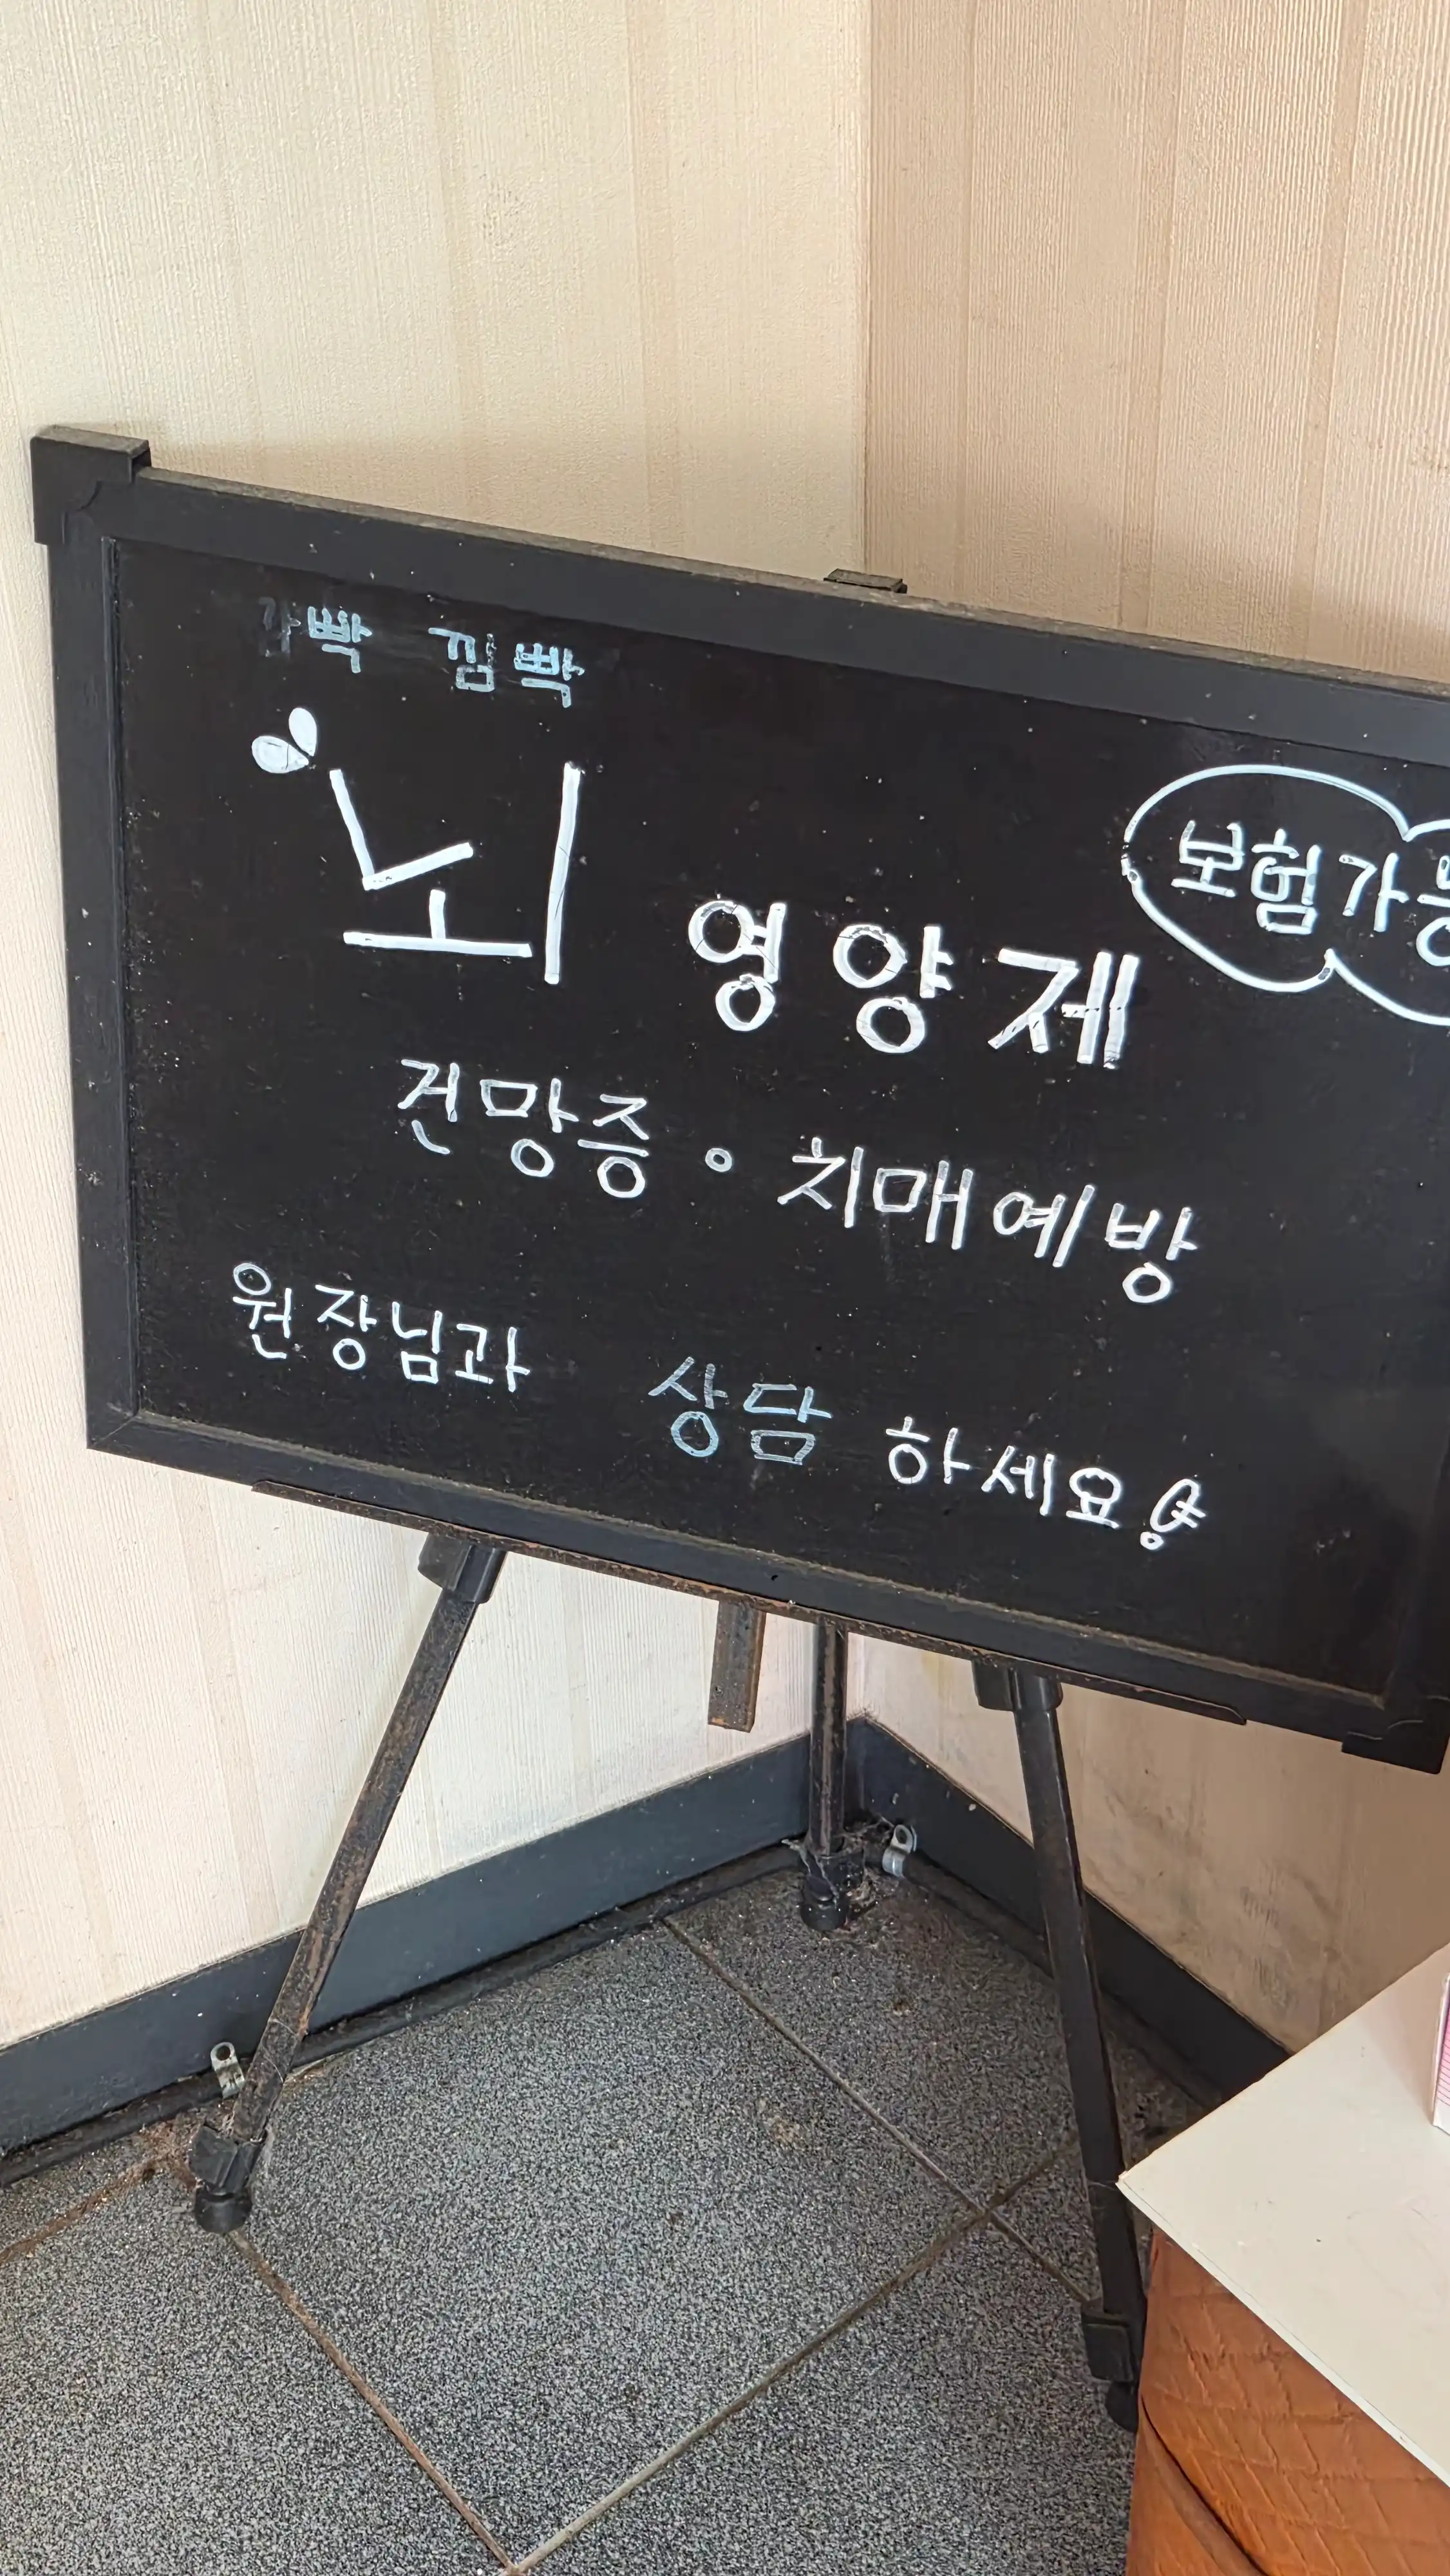 깜빡 낌빡
뇌 영양제
보험가능
건망증 · 치매예방
원장님과 상담 하세요!